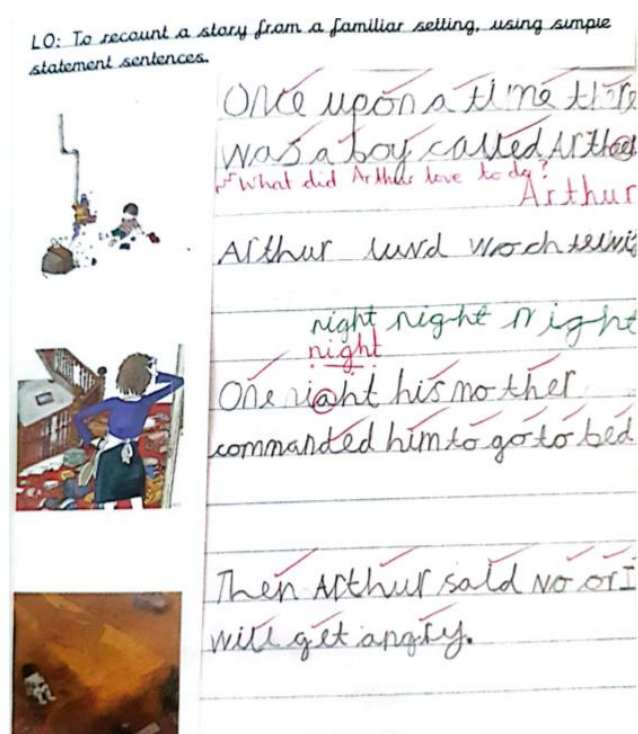 LO: To recount a story from a familiar setting, using simple
statement sentences.
Once upon a time there
was a boy called
What did Arthur love to do?
Arthur
Arthur luvd woch
night night night
night
One niaht his mother
commanded him to go to bed
Then Arthur said No or I
will get angry.